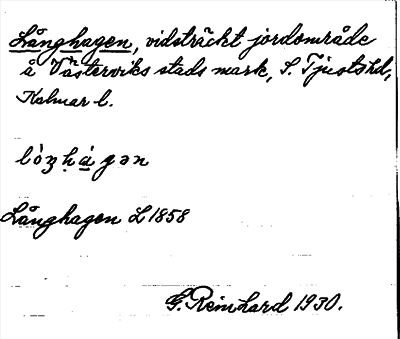 Långhagen, vidsträckt jordområde
å Västerviks stads mark, S. Tjusts hd,
Kalmar l.
lòŋhágən
Långhagen L 1858
G. Reinhard 1930.